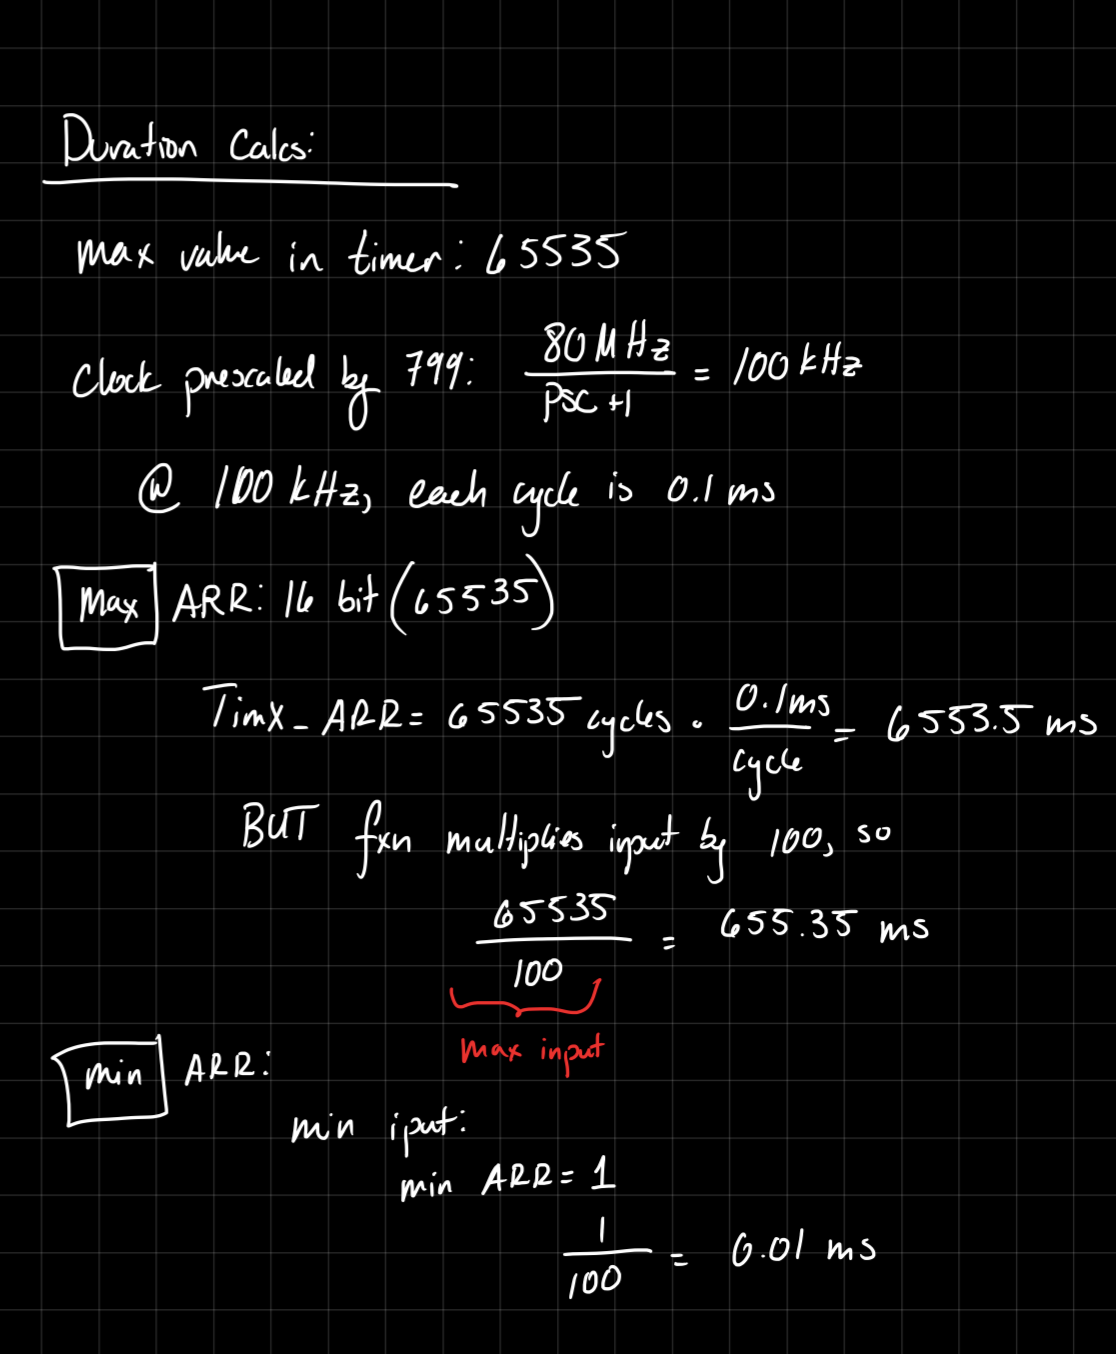 Duration Calcs:
max value in timer: 65535
Clock prescaled by 799: 80 MHz / PSC +1 = 100 kHz
@ 100 kHz, each cycle is 0.1 ms
Max ARR: 16 bit (65535)
Timx_ARR = 65535 cycles · 0.1ms / cycle = 6553.5 ms
BUT fxn multiplies input by 100, so
65535 / 100 = 655.35 ms
max input
min ARR:
min iput:
min ARR = 1
1 / 100 = 0.01 ms